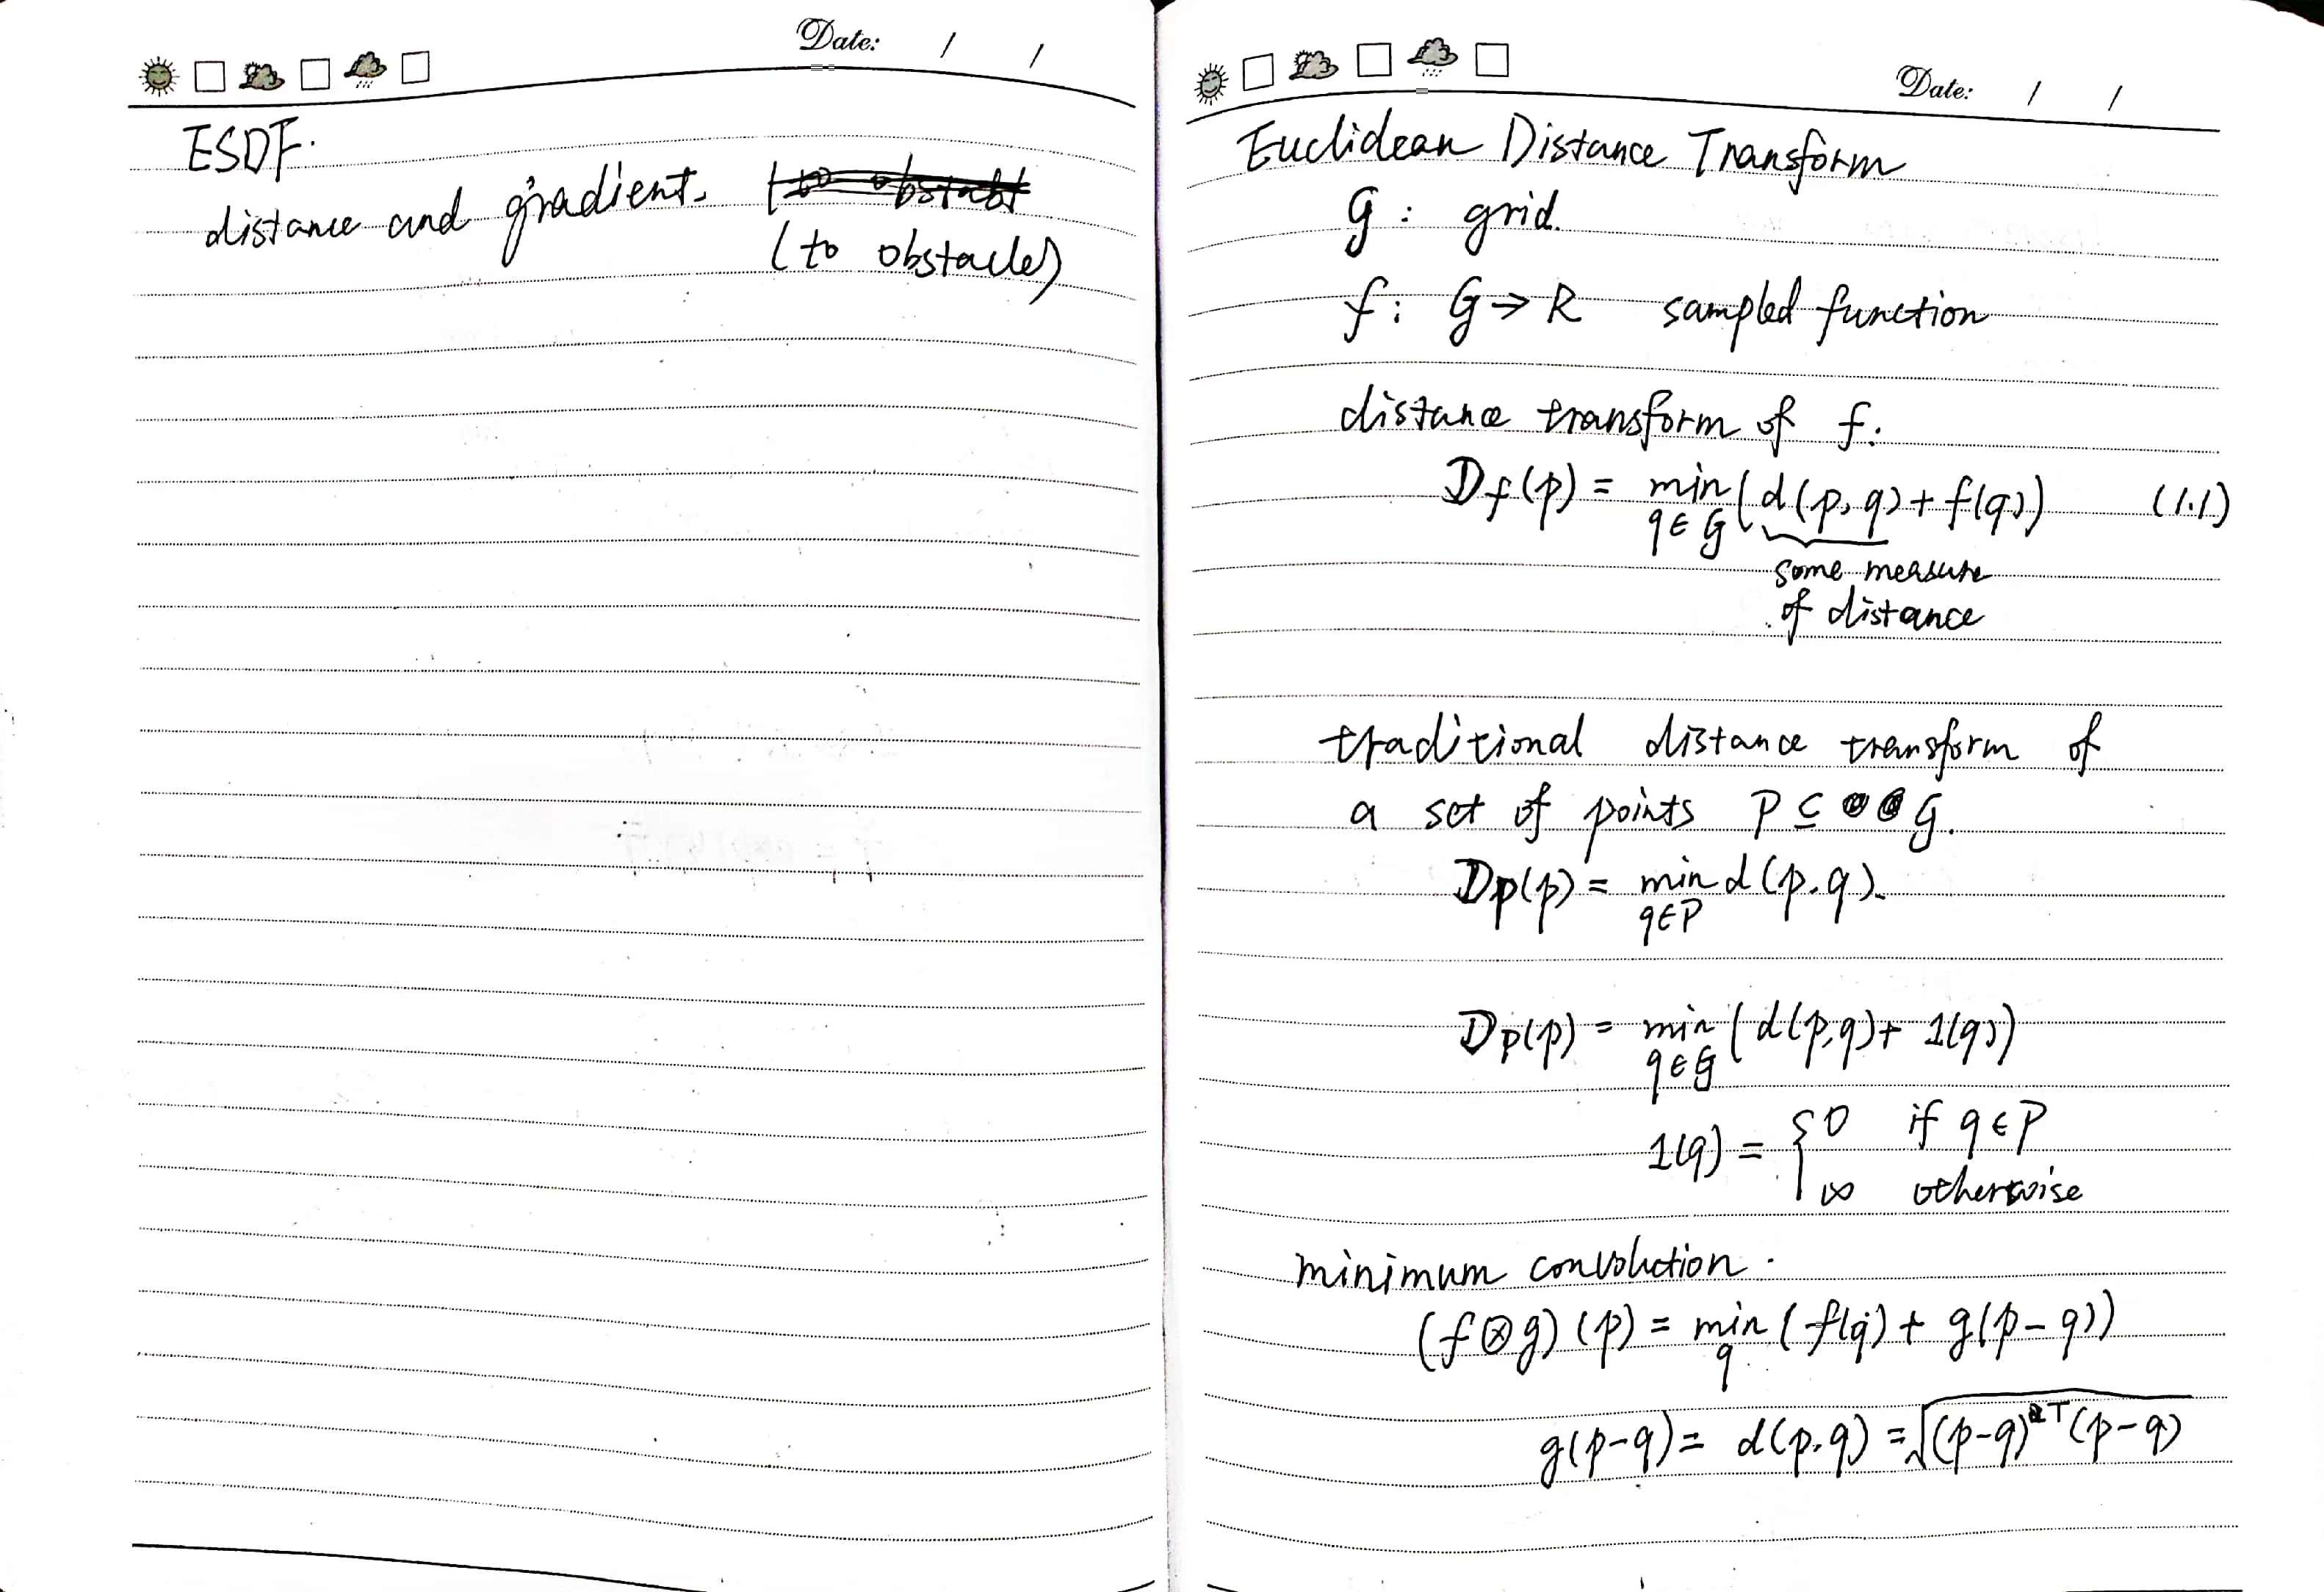 Date: / /
ESDF.
distance and gradient.
(to obstacle)
Date: / /
Euclidean Distance Transform
G : grid.
f : G → R sampled function
distance transform of f.
D_f(p) = min_{q∈G} (d(p,q) + f(q)) (1.1)
some measure
of distance
traditional distance transform of
a set of points P ⊆ G.
D_P(p) = min_{q∈P} d(p,q).
D_P(p) = min_{q∈G} (d(p,q) + 1(q))
1(q) = { 0 if q ∈ P
∞ otherwise
minimum convolution.
(f ⊗ g)(p) = min_q (f(q) + g(p-q))
g(p-q) = d(p,q) = √((p-q)^T (p-q))